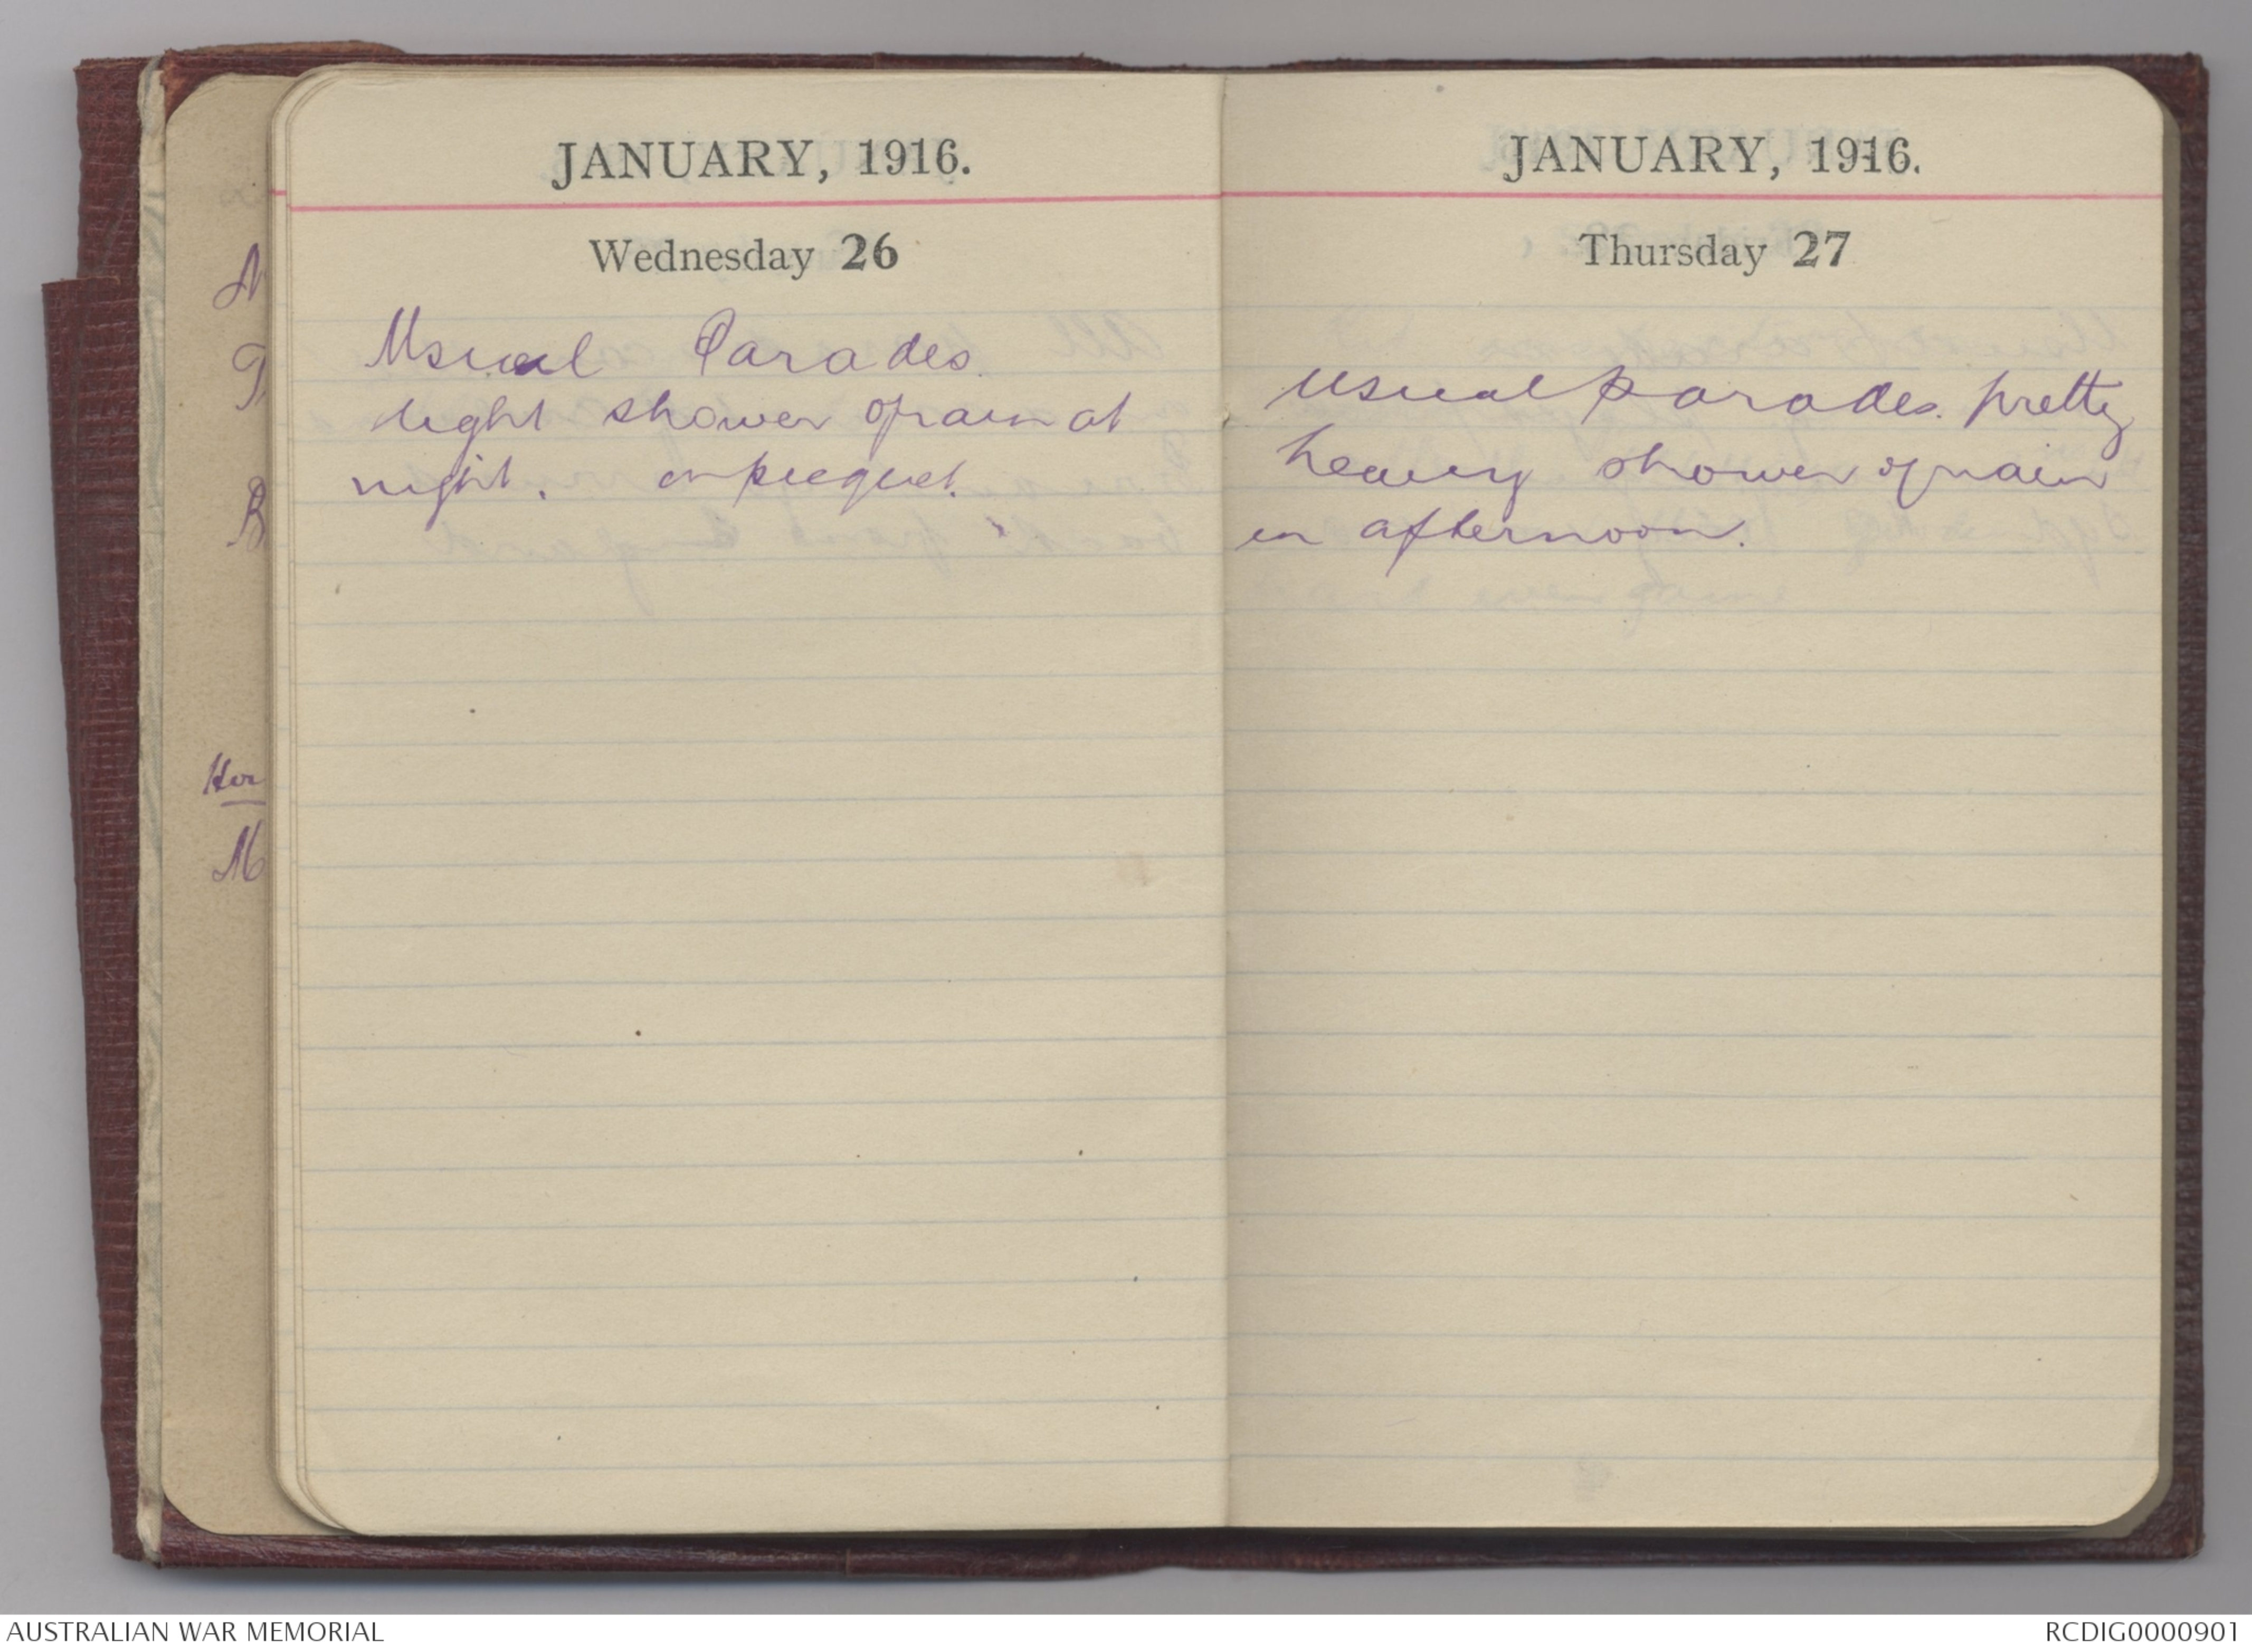 JANUARY, 1916.
Wednesday 26
Usual Parades.
light shower of rain at
night. on picquet.
JANUARY, 1916.
Thursday 27
Usual parades. pretty
heavy shower of rain
in afternoon.
Hon
M
AUSTRALIAN WAR MEMORIAL
RCDIG0000901